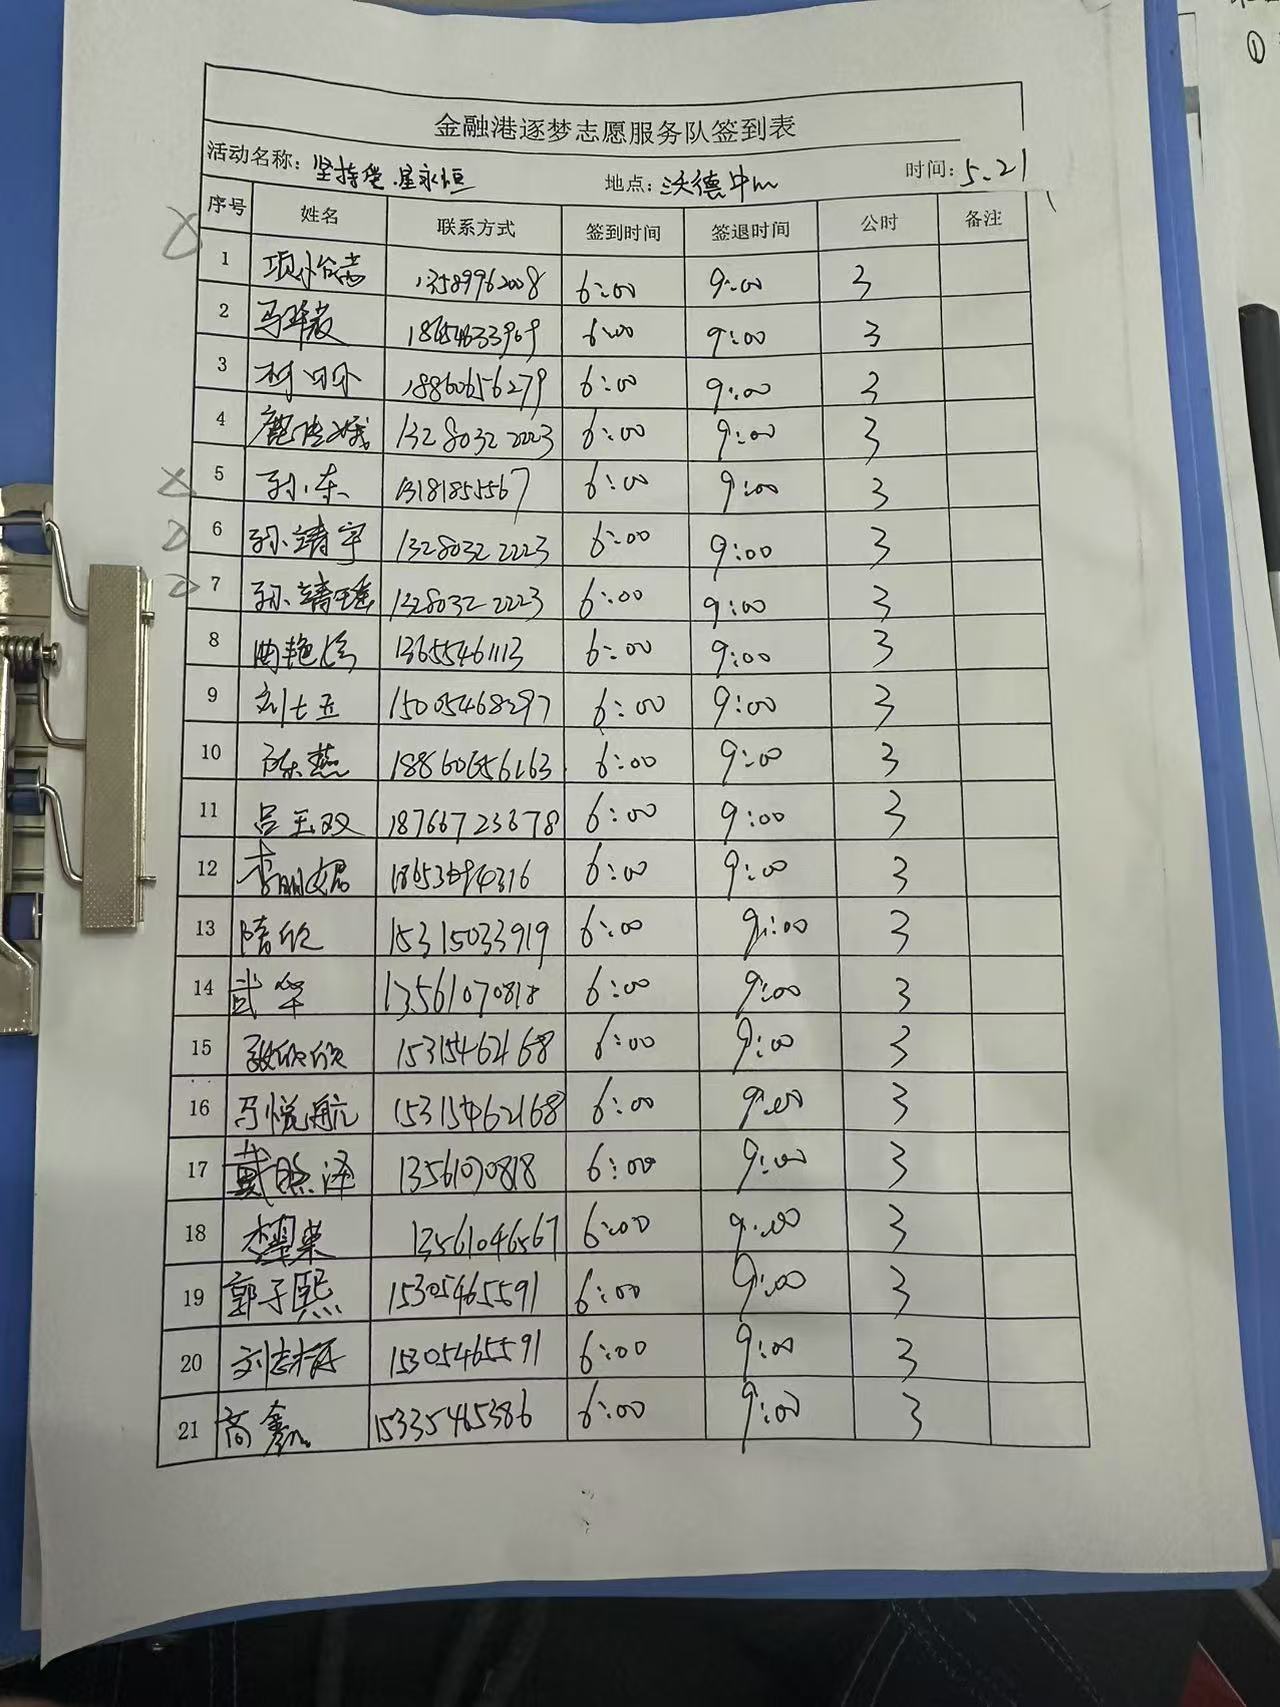 金融港逐梦志愿服务队签到表
活动名称: 坚持 星永恒 地点: 沃德中心 时间: 5.21
序号 姓名 联系方式 签到时间 签退时间 公时 备注
1 项怡 13589962008 6:00 9:00 3
2 马 6:00 9:00 3
3 18860656279 6:00 9:00 3
4 13280322223 6:00 9:00 3
5 孙东 13181855567 6:00 9:00 3
6 孙靖宇 13280322223 6:00 9:00 3
7 孙靖瑶 13280322223 6:00 9:00 3
8 曲艳 13655461113 6:00 9:00 3
9 刘士玉 15005468297 6:00 9:00 3
10 陈燕 18860656163 6:00 9:00 3
11 吕玉双 18766723678 6:00 9:00 3
12 李丽娟 6:00 9:00 3
13 隋欣 15315033919 6:00 9:00 3
14 武华 13561070818 6:00 9:00 3
15 欣欣 15315462168 6:00 9:00 3
16 马悦航 15315462168 6:00 9:00 3
17 戴熙泽 13561070818 6:00 9:00 3
18 13561046567 6:00 9:00 3
19 郭子熙 15305465591 6:00 9:00 3
20 刘志 15305465591 6:00 9:00 3
21 商鑫 15335465386 6:00 9:00 3
①